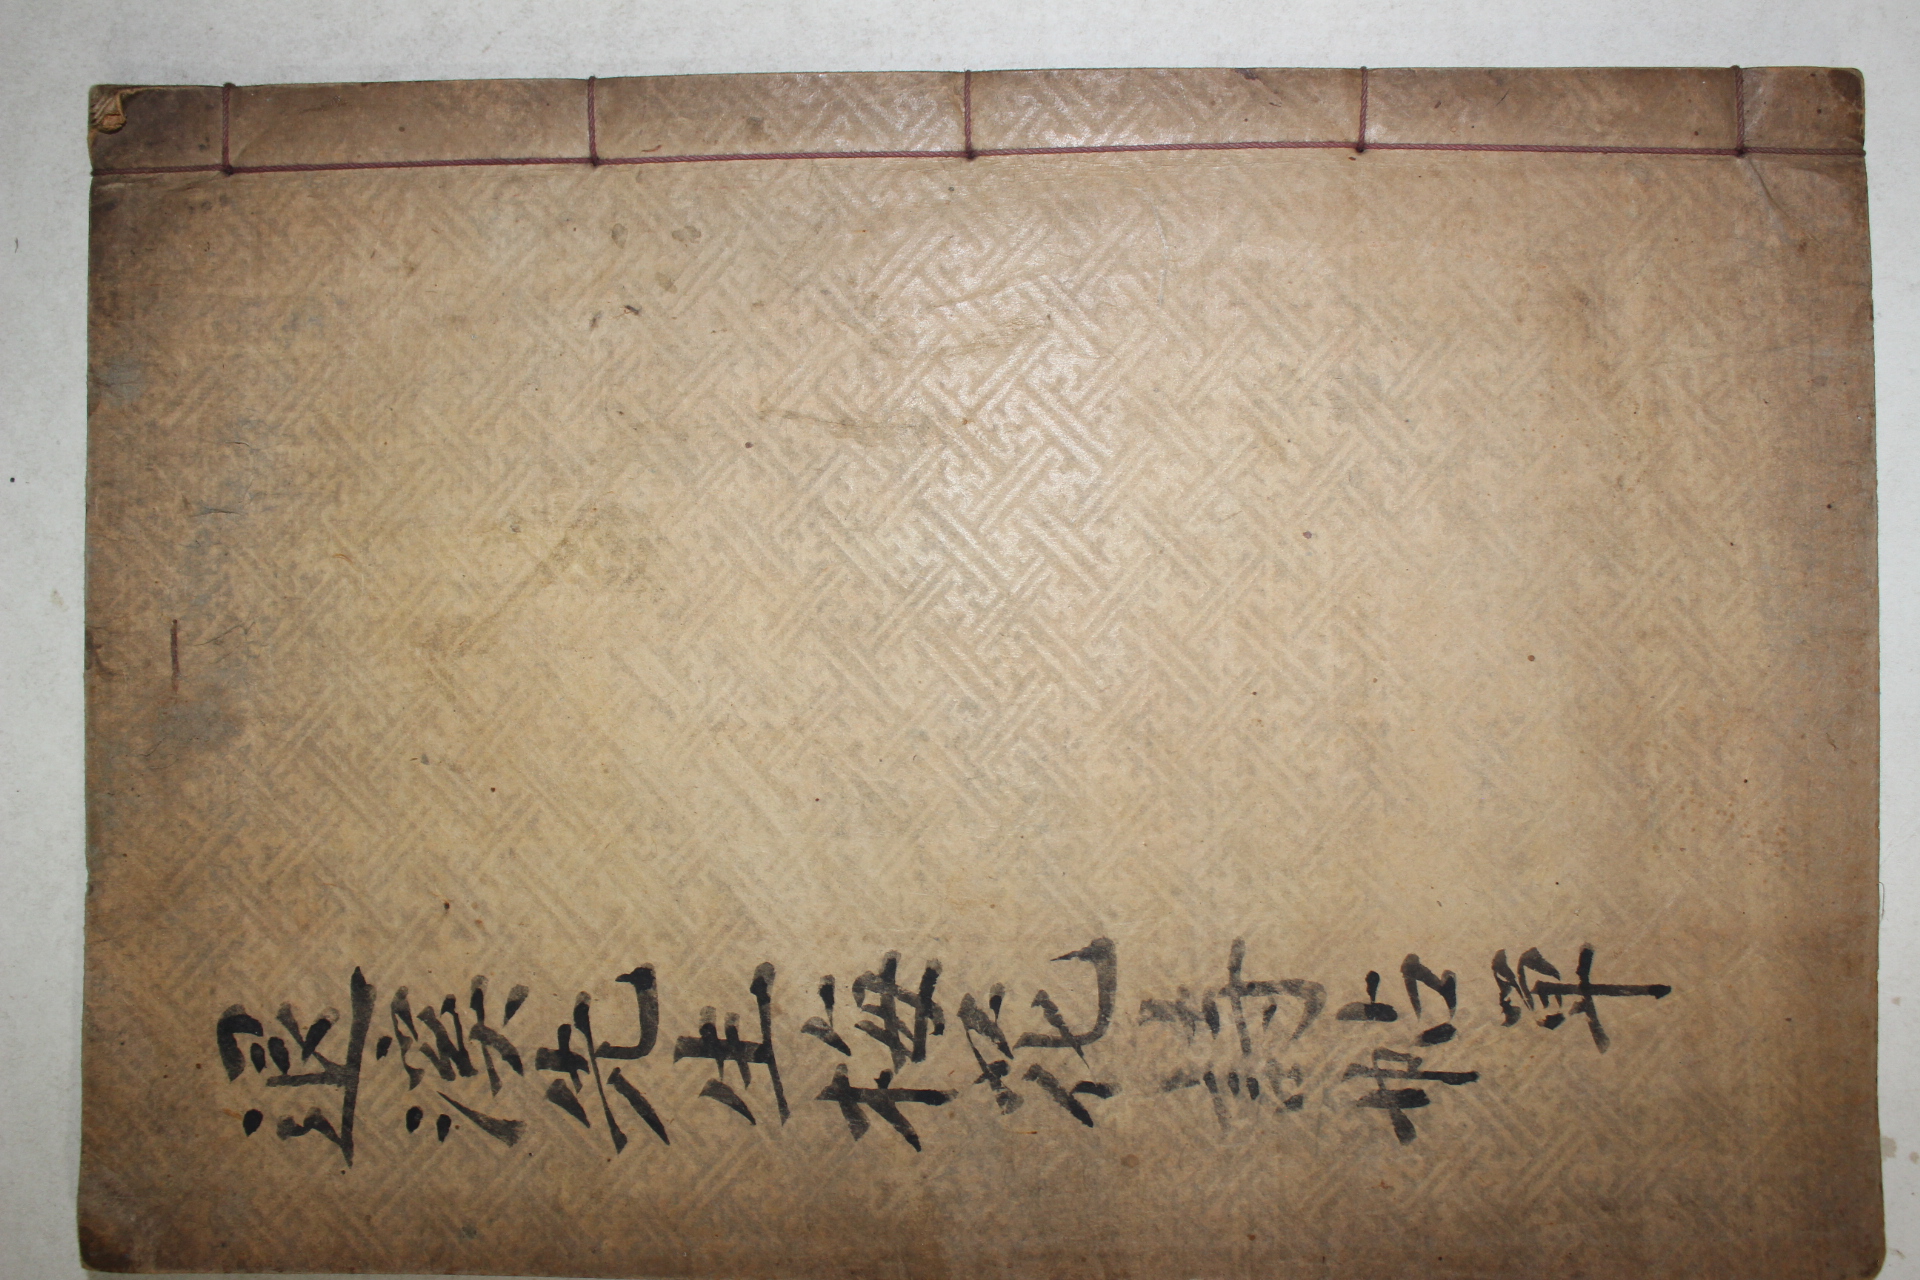 退溪先生梅花詩帖 單